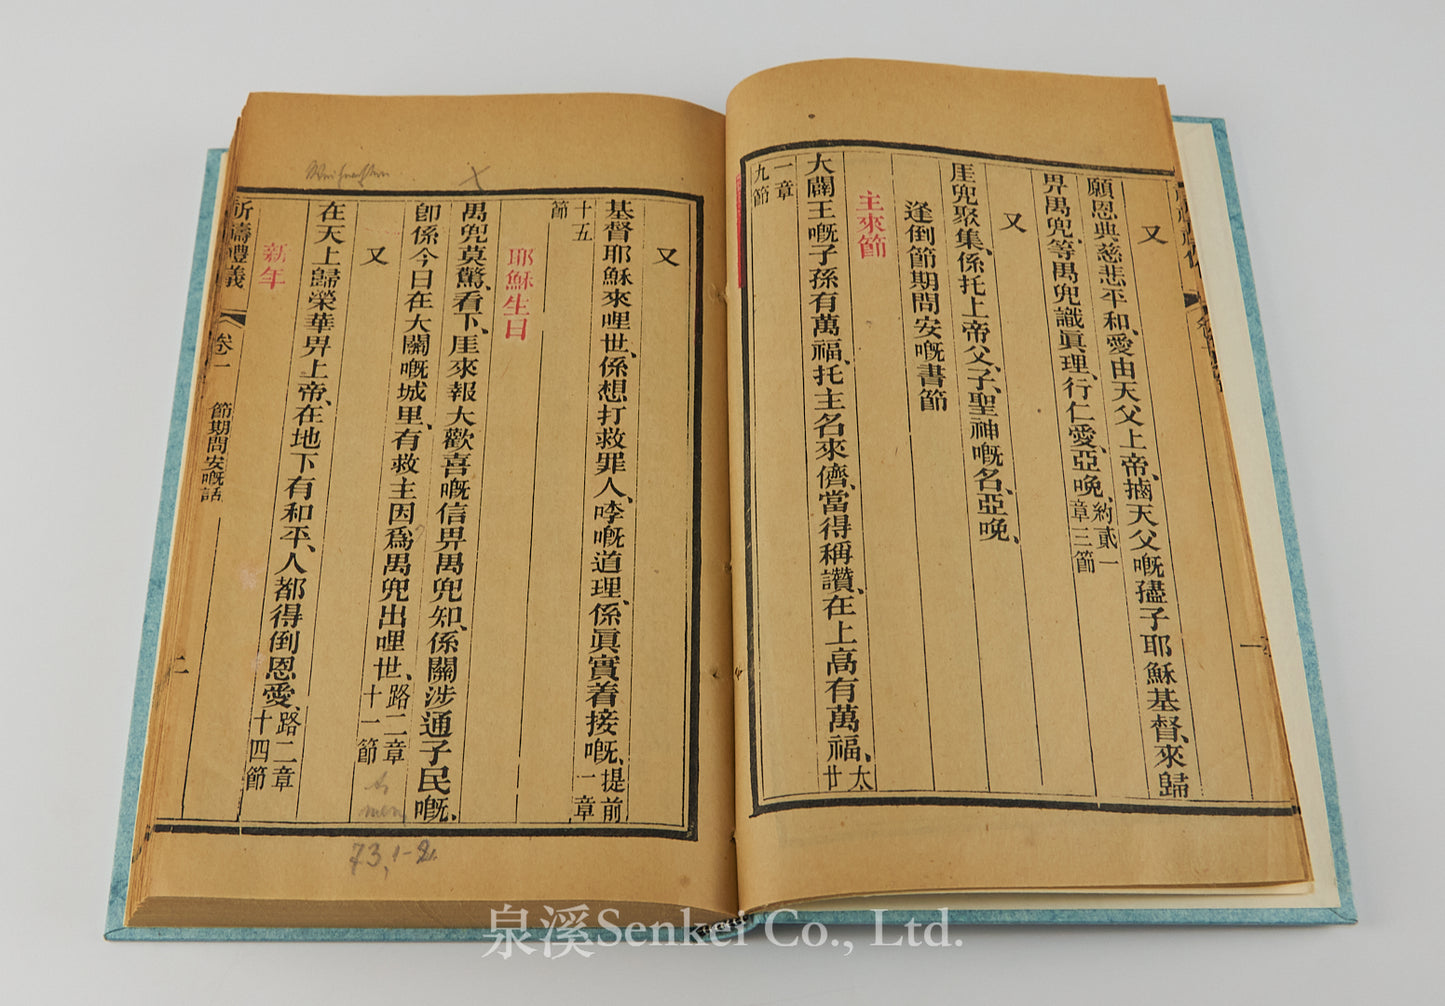 又
願恩典慈悲平和、愛由天父上帝、㨢天父嘅𡥧子耶穌基督、來歸
畀禺兜、等禺兜識眞理、行仁愛、亞晚、約貳一章三節
又
厓兜聚集、係托上帝父、子、聖神嘅名、亞晚、
逢倒節期問安嘅書節
主來節
大闢王嘅子孫有萬福、托主名來儕、當得稱讚、在上高有萬福、太廿
一章九節
又
基督耶穌來哩世、係想打救罪人、㖿嘅道理、係眞實着接嘅、提前一章
十五節
耶穌生日
禺兜莫驚、看下、厓來報大歡喜嘅信畀禺兜知、係關涉通子民嘅、
卽係今日在大闢嘅城里、有救主因爲禺兜出哩世、路二章十一節
又
在天上歸榮華畀上帝、在地下有和平、人都得倒恩愛、路二章十四節
新年
祈禱禮義
卷一
節期問安嘅話
二
Weihnachten
73,1-2
泉溪Senkei Co., Ltd.